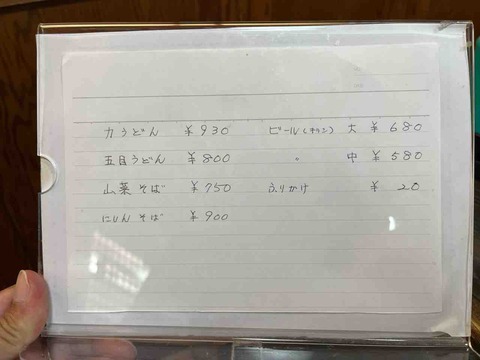 力うどん ¥930 ビール(キリン) 大 ¥680
五目うどん ¥800 〃 中 ¥580
山菜そば ¥750 ふりかけ ¥20
にしんそば ¥900